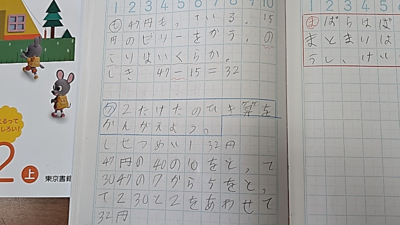 くるって
しろい!
2上
東京書籍
1 2 3 4 5 6 7 8 9 10
も 47円も,ている。15
円のゼリーをかう。の
こりはいくらか。
しき 47-15=32
2たけたのひき算を
かんがえよう。
しせつめい1 32円
47円の40の10をと,て
30 47の7から5をと,
て2 30と2をあわせて
32円
1 2 3 4 5
ま ばらはば
まとまりは